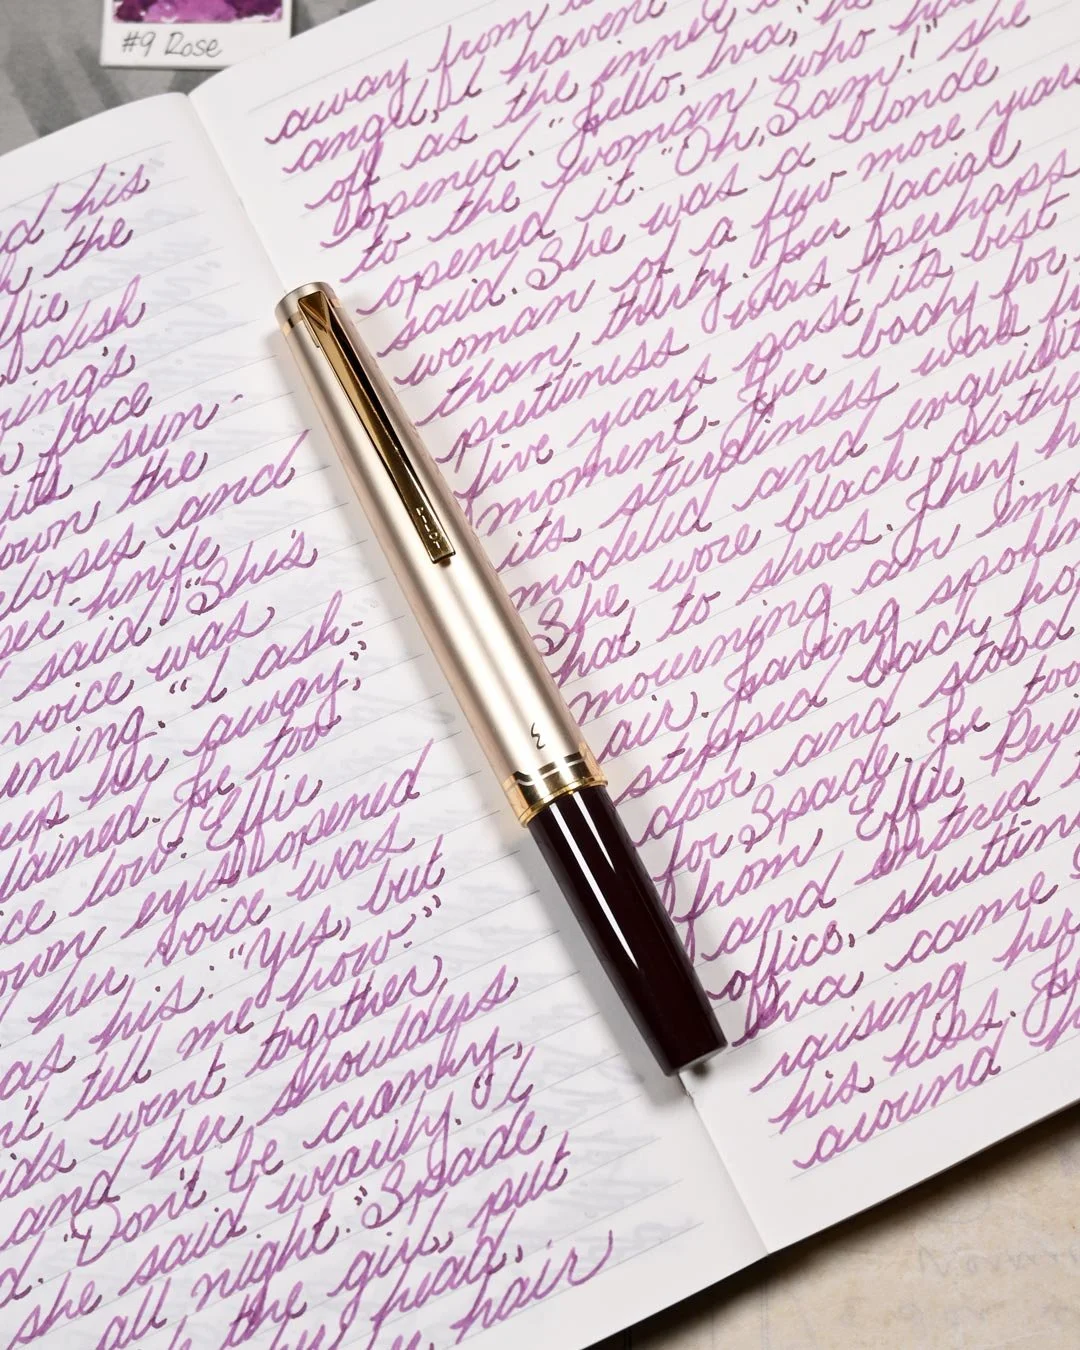 #9 Rose
his
the
dish
face
its sun-
down the
and
knife
said. "She's
voice was
"I ash-
her away,"
He too
low. Effie
eyes opened
her voice was
as his. "Yes, but
tell me how."
went together,
and her shoulders
"Don't be cranky,"
she said wearily. "I
all night." Spade
the girl, put
head,
hair
away from
angel, I haven't
off as the inner
opened. "Hello, Iva," he
to the woman who had
opened it. "Oh, Sam!" she
said. She was a blonde
woman of a few more years
than thirty. Her facial
prettiness was perhaps
five years past its best
moment. Her body for
its sturdiness was
modeled and exquisite
She wore black clothes
hat to shoes. They
mourning an
air. Having spoken
stepped back
door and stood
for Spade. He took
from Effie
and entered
office, shutting
Iva came
raising her
his kiss.
around
PILOT
E